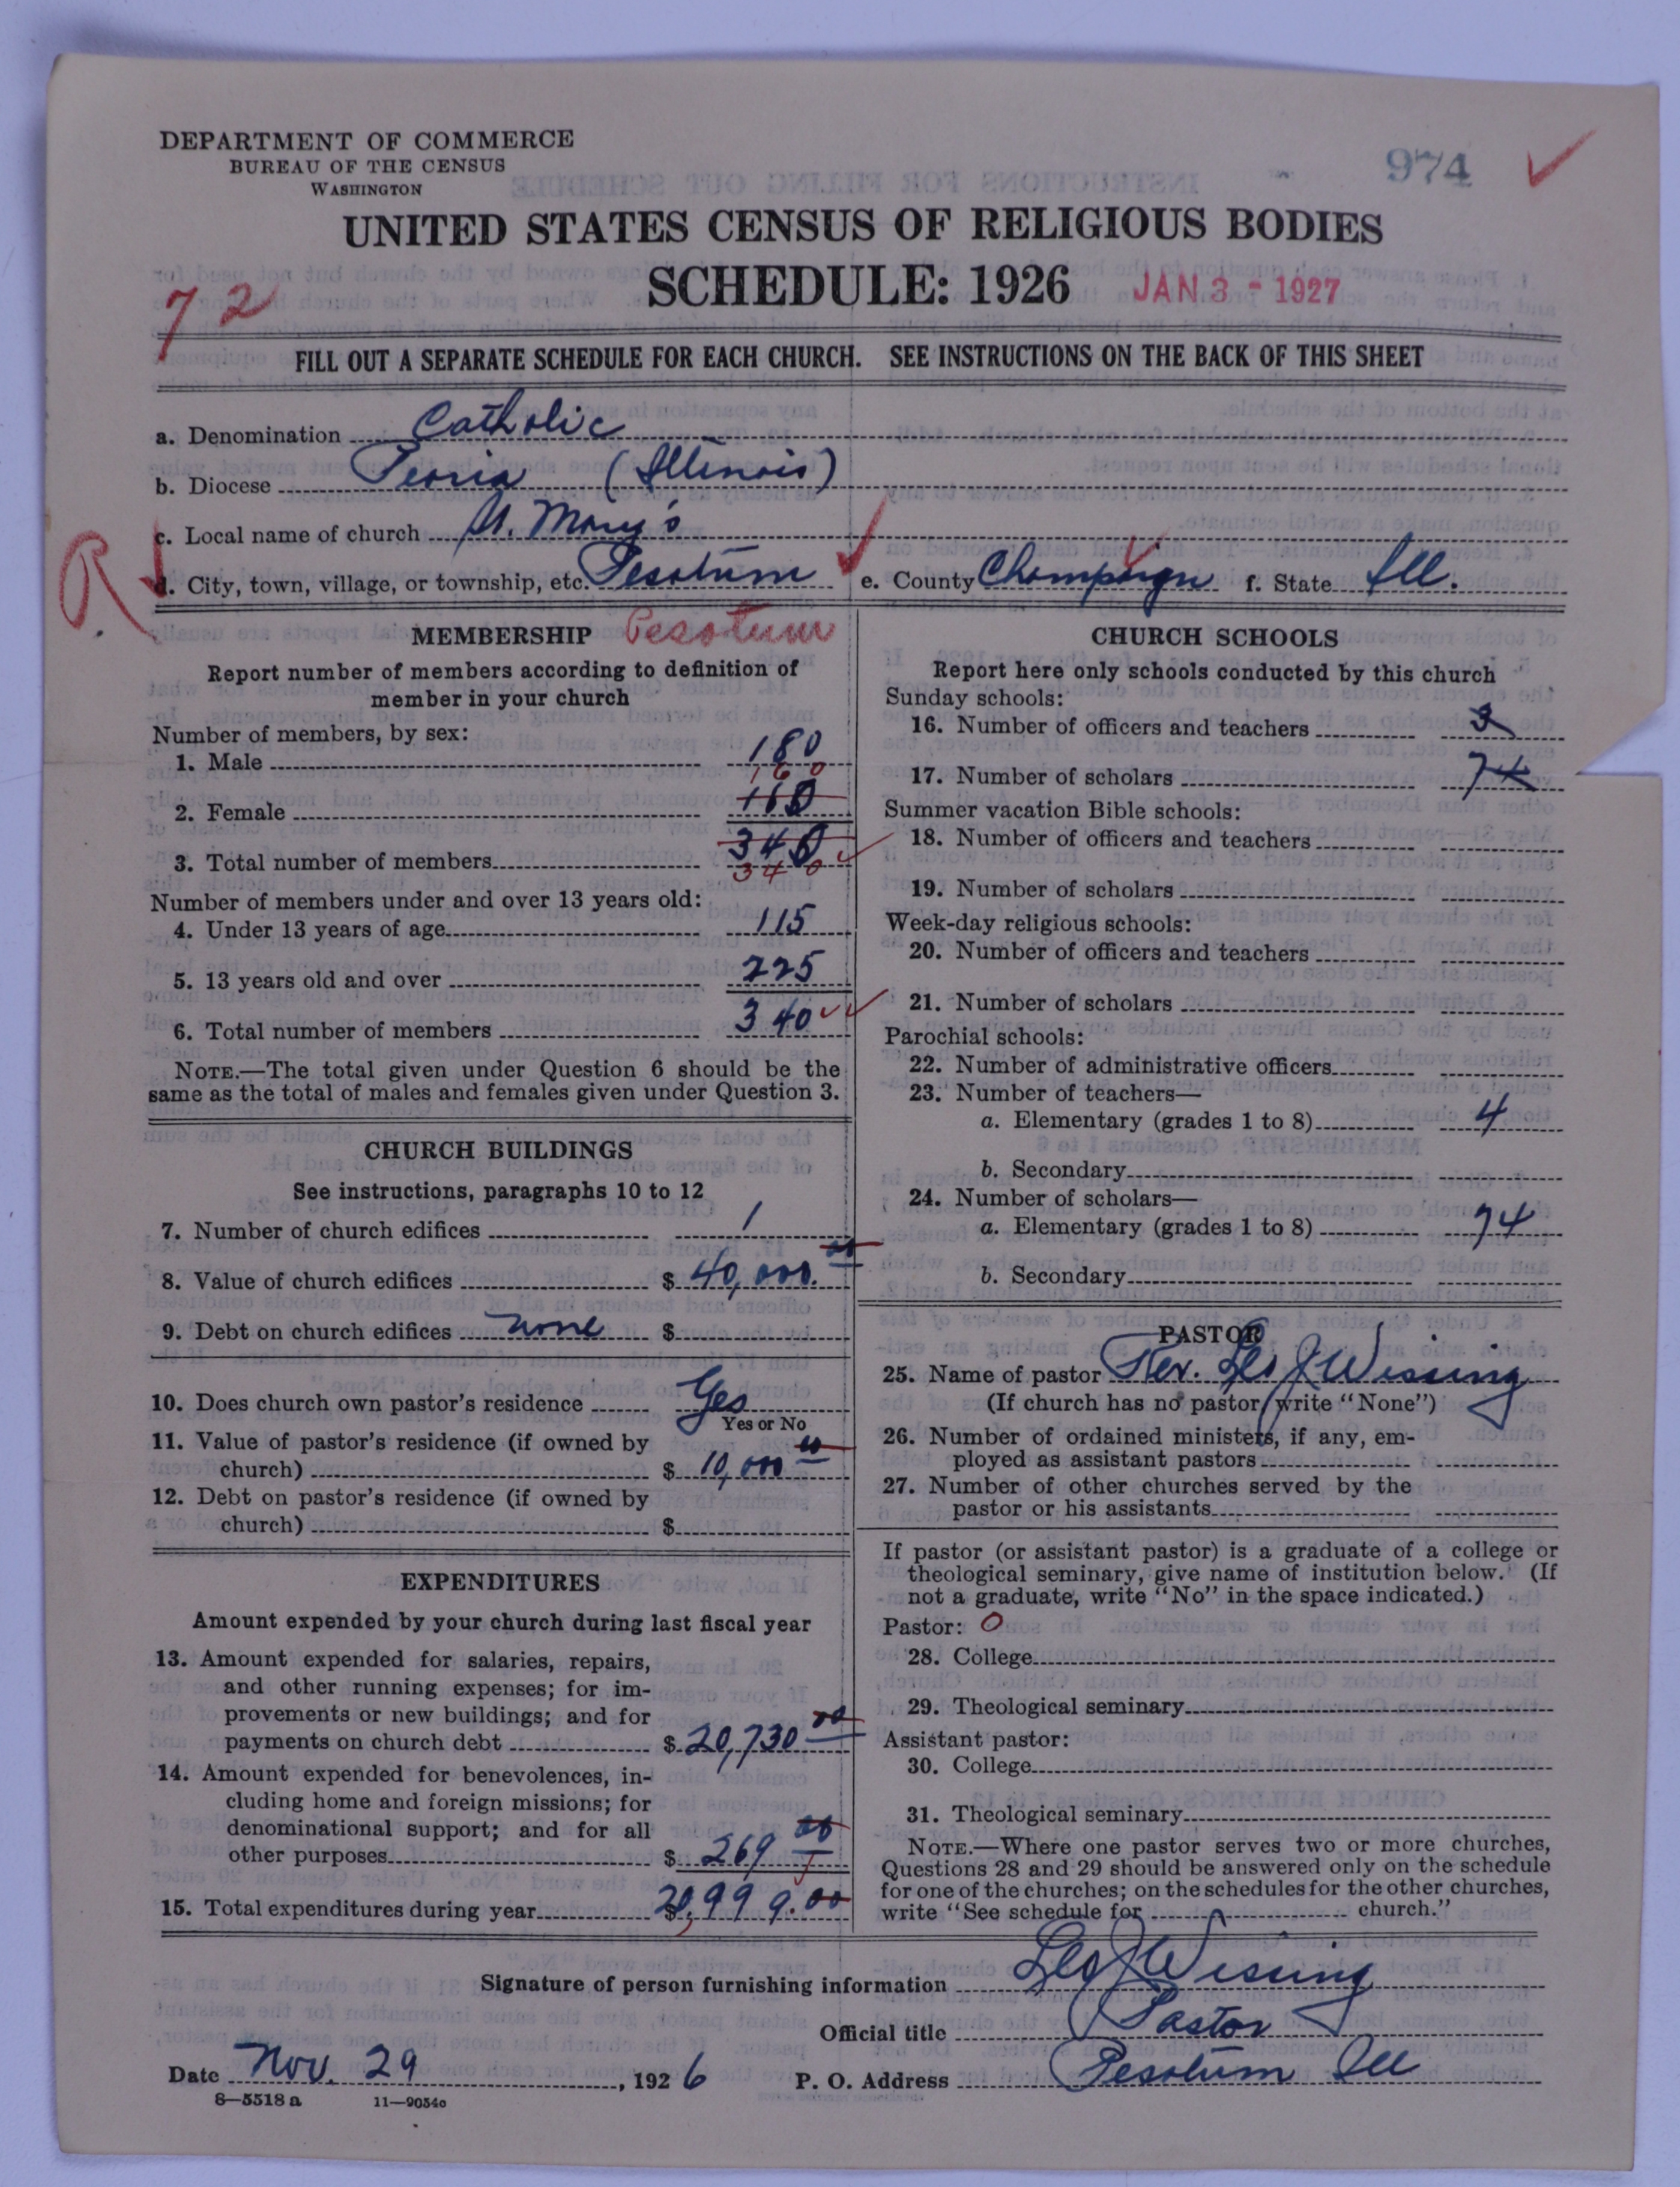 DEPARTMENT OF COMMERCE
BUREAU OF THE CENSUS
WASHINGTON
974
UNITED STATES CENSUS OF RELIGIOUS BODIES
SCHEDULE: 1926
JAN 3 - 1927
72
FILL OUT A SEPARATE SCHEDULE FOR EACH CHURCH. SEE INSTRUCTIONS ON THE BACK OF THIS SHEET
a. Denomination Catholic
b. Diocese Peoria (Illinois)
c. Local name of church St. Mary's
R
d. City, town, village, or township, etc. Pesotum e. County Champaign f. State Ill.
MEMBERSHIP Pesotum
Report number of members according to definition of
member in your church
Number of members, by sex:
1. Male 180
160
2. Female 160
3. Total number of members 340
340
Number of members under and over 13 years old:
4. Under 13 years of age 115
5. 13 years old and over 225
6. Total number of members 340
NOTE.—The total given under Question 6 should be the
same as the total of males and females given under Question 3.
CHURCH BUILDINGS
See instructions, paragraphs 10 to 12
7. Number of church edifices 1
8. Value of church edifices $ 40,000.00
9. Debt on church edifices none $
10. Does church own pastor's residence Yes
Yes or No
11. Value of pastor's residence (if owned by
church) $ 10,000 00
12. Debt on pastor's residence (if owned by
church) $
EXPENDITURES
Amount expended by your church during last fiscal year
13. Amount expended for salaries, repairs,
and other running expenses; for im-
provements or new buildings; and for
payments on church debt $ 20,730 00
14. Amount expended for benevolences, in-
cluding home and foreign missions; for
denominational support; and for all
other purposes $ 269 00
15. Total expenditures during year $ 20,999.00
CHURCH SCHOOLS
Report here only schools conducted by this church
Sunday schools:
16. Number of officers and teachers 3
17. Number of scholars 74
Summer vacation Bible schools:
18. Number of officers and teachers
19. Number of scholars
Week-day religious schools:
20. Number of officers and teachers
21. Number of scholars
Parochial schools:
22. Number of administrative officers
23. Number of teachers—
a. Elementary (grades 1 to 8) 4
b. Secondary
24. Number of scholars—
a. Elementary (grades 1 to 8) 74
b. Secondary
PASTOR
25. Name of pastor Rev. Leo J Wissing
(If church has no pastor, write "None")
26. Number of ordained ministers, if any, em-
ployed as assistant pastors
27. Number of other churches served by the
pastor or his assistants
If pastor (or assistant pastor) is a graduate of a college or
theological seminary, give name of institution below. (If
not a graduate, write "No" in the space indicated.)
Pastor: O
28. College
29. Theological seminary
Assistant pastor:
30. College
31. Theological seminary
NOTE.—Where one pastor serves two or more churches,
Questions 28 and 29 should be answered only on the schedule
for one of the churches; on the schedules for the other churches,
write "See schedule for church."
Signature of person furnishing information Leo J Wissing
Official title Pastor
Date Nov. 29, 1926 P. O. Address Pesotum Ill
8—5518 a 11—9054c